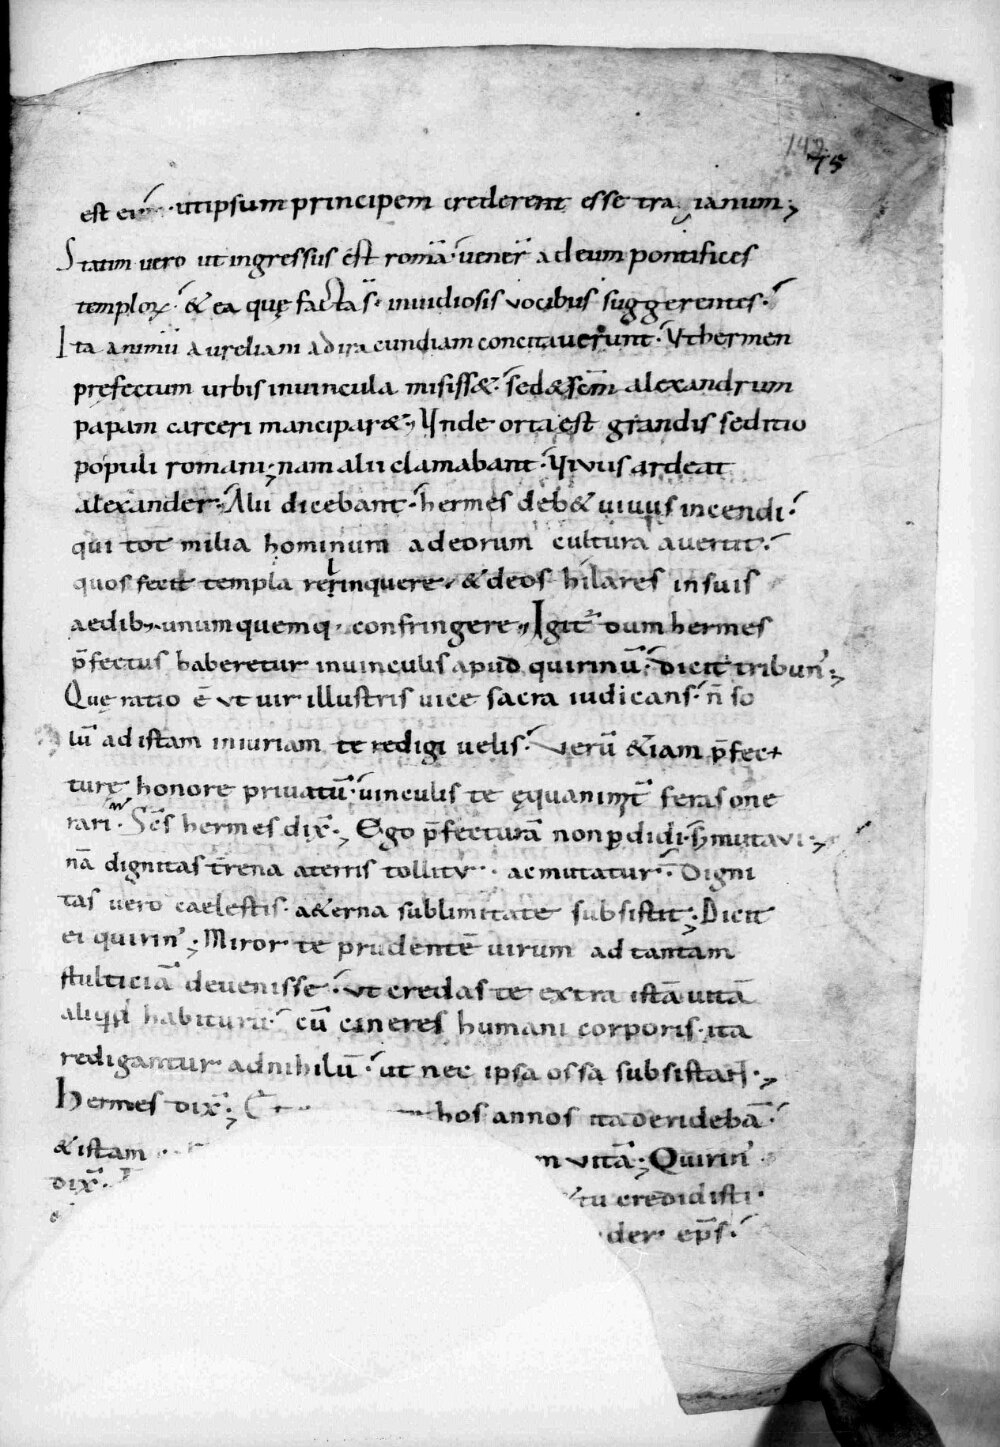 142
75
est ei · ut ipsum principem crederent esse tra ianum;
Statim uero ut ingressus est romā· uener̄ ad eum pontifices
temploꝝ· & ea quę facta s̄· inuidiosis vocibus suggerentes·
Ita animū aureliani ad iracundiam concitauerunt· Ut hermen
pręfectum urbis in uincula misiss&· sed & sc̄m alexandrum
papam carceri mancipar&; Unde orta est grandis seditio
populi romani; nam alii clamabant· Uiuus ardeat
alexander· Alii dicebant· hermes deb& uiuus incendi·
qui tot milia hominum a deorum cultura auertit·
quos fecit templa relinquere· & deos hilares in suis
aedib; unumquemq· confringere; Igit̄ dum hermes
p̄fectus haberetur in uinculis apud quirinū· Dicit tribun᾿;
Quę ratio ē ut uir illustris uice sacra iudicans· n̄ so
lū ad istam iniuriam te redigi uelis· Uerū &iam p̄fec
turę honore priuatū· uinculis te ęquanimit̄ feras one
rari· Sc̄s hermes dix̄; Ego p̄fecturā non ꝑdidi· sꝫ mutaui;
nā dignitas t̄rena a terris tollitur· ac mutatur· Digni
tas uero caelestis· a&erna sublimitate subsistit; Dicit
ei quirin᾿; Miror te prudentē uirum ad tantam
stulticiā deuenisse· ut credas te extra istā uitā
aliqid habiturū· cū cineres humani corporis· ita
redigantur ad nihilū· ut nec ipsa ossa subsistant;
Hermes dix̄; hos annos ita deridebā·
& istam m uitā; Quirin᾿
dix̄· tu credidisti·
der· ep̄s·